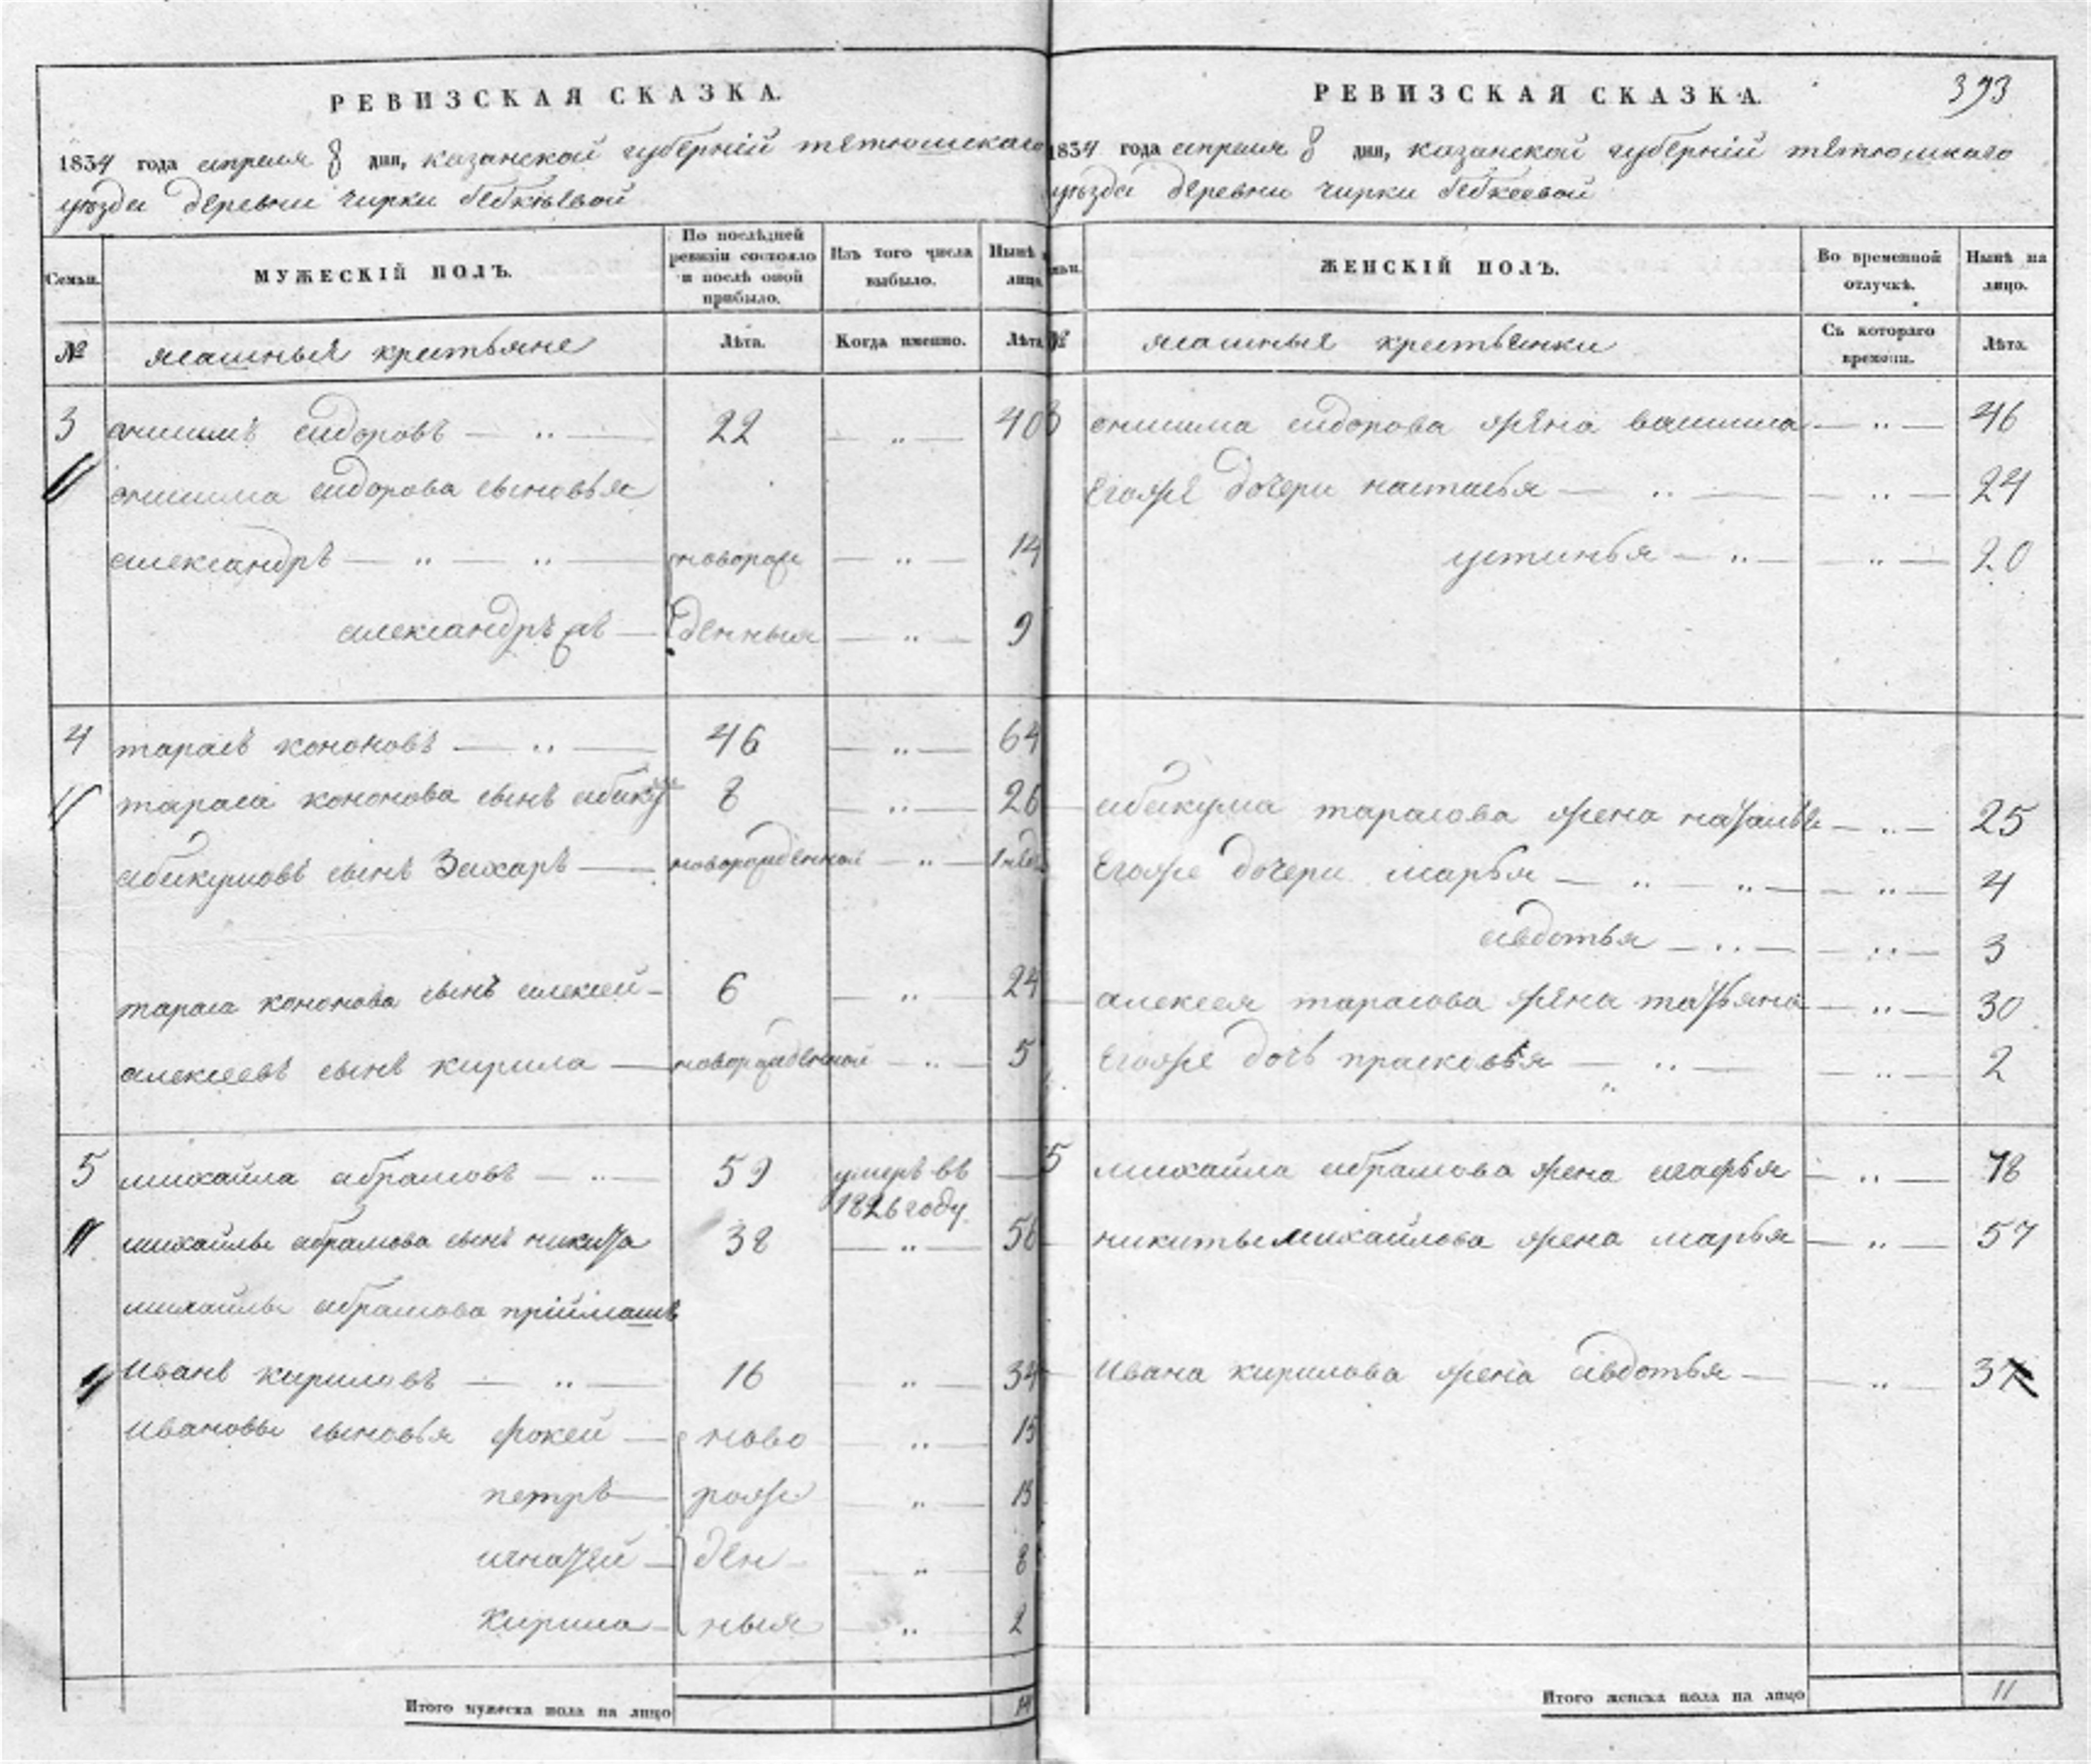 РЕВИЗСКАЯ СКАЗКА.
1834 года апреля 8 дня, казанской губерній тетюшскаго
уѣзда деревни чирки бебкѣевой
Семьи.
МУЖЕСКІЙ ПОЛЪ.
По послѣдней ревизіи состояло и послѣ оной прибыло.
Изъ того числа выбыло.
Нынѣ на лицо.
№
ясашныя крестьяне
Лѣта.
Когда именно.
Лѣта
3 онисимъ сидоровъ — „ — 22 — „ — 40
онисима сидорова сыновья
александръ — „ — „ — новорож — „ — 14
александръ же — денныя — „ — 9
4 тарасъ кононовъ — „ — 46 — „ — 64
тараса кононова сынъ абакумъ 8 — „ — 26
абакумовъ сынъ Захаръ — новорожденной — „ — 1 нед
тараса кононова сынъ алексей — 6 — „ — 24
алексеевъ сынъ кирила — новорожденной — „ — 5
5 михайла абрамовъ — „ — 59 умеръ въ 1826 году —
михайлы абрамова сынъ никита 38 — „ — 56
михайлы абрамова пріймашъ
Иванъ кириловъ — „ — 16 „ — 34
Ивановы сыновья фокей — ново — „ — 15
петръ — рож — „ — 13
игнатей — ден — „ — 8
Кирила — ныя — „ — 2
Итого мужеска пола на лицо 14
РЕВИЗСКАЯ СКАЗКА.
393
1834 года апреля 8 дня, казанской губерній тетюшкаго
уѣзда деревни чирки бебкеевой
Семьи.
ЖЕНСКІЙ ПОЛЪ.
Во временной отлучкѣ.
Нынѣ на лицо.
№
ясашныя крестьянки
Съ котораго времени.
Лѣта.
3 онисима сидорова жена — „ — 46
Егоже дочери настасья — „ — — „ — 24
устинья — „ — — „ — 20
абакума тарасова жена наталья — „ — 25
Егоже дочери марья — „ — „ — — „ — 4
авдотья — „ — — „ — 3
алексея тарасова жена татьяна — „ — 30
Егоже дочь прасковья — „ — — „ — 2
5 михайла абрамова жена агафья — „ — 78
никиты михайлова жена марья — „ — 57
Ивана кирилова жена авдотья — — „ — 37
Итого женска пола на лицо 11